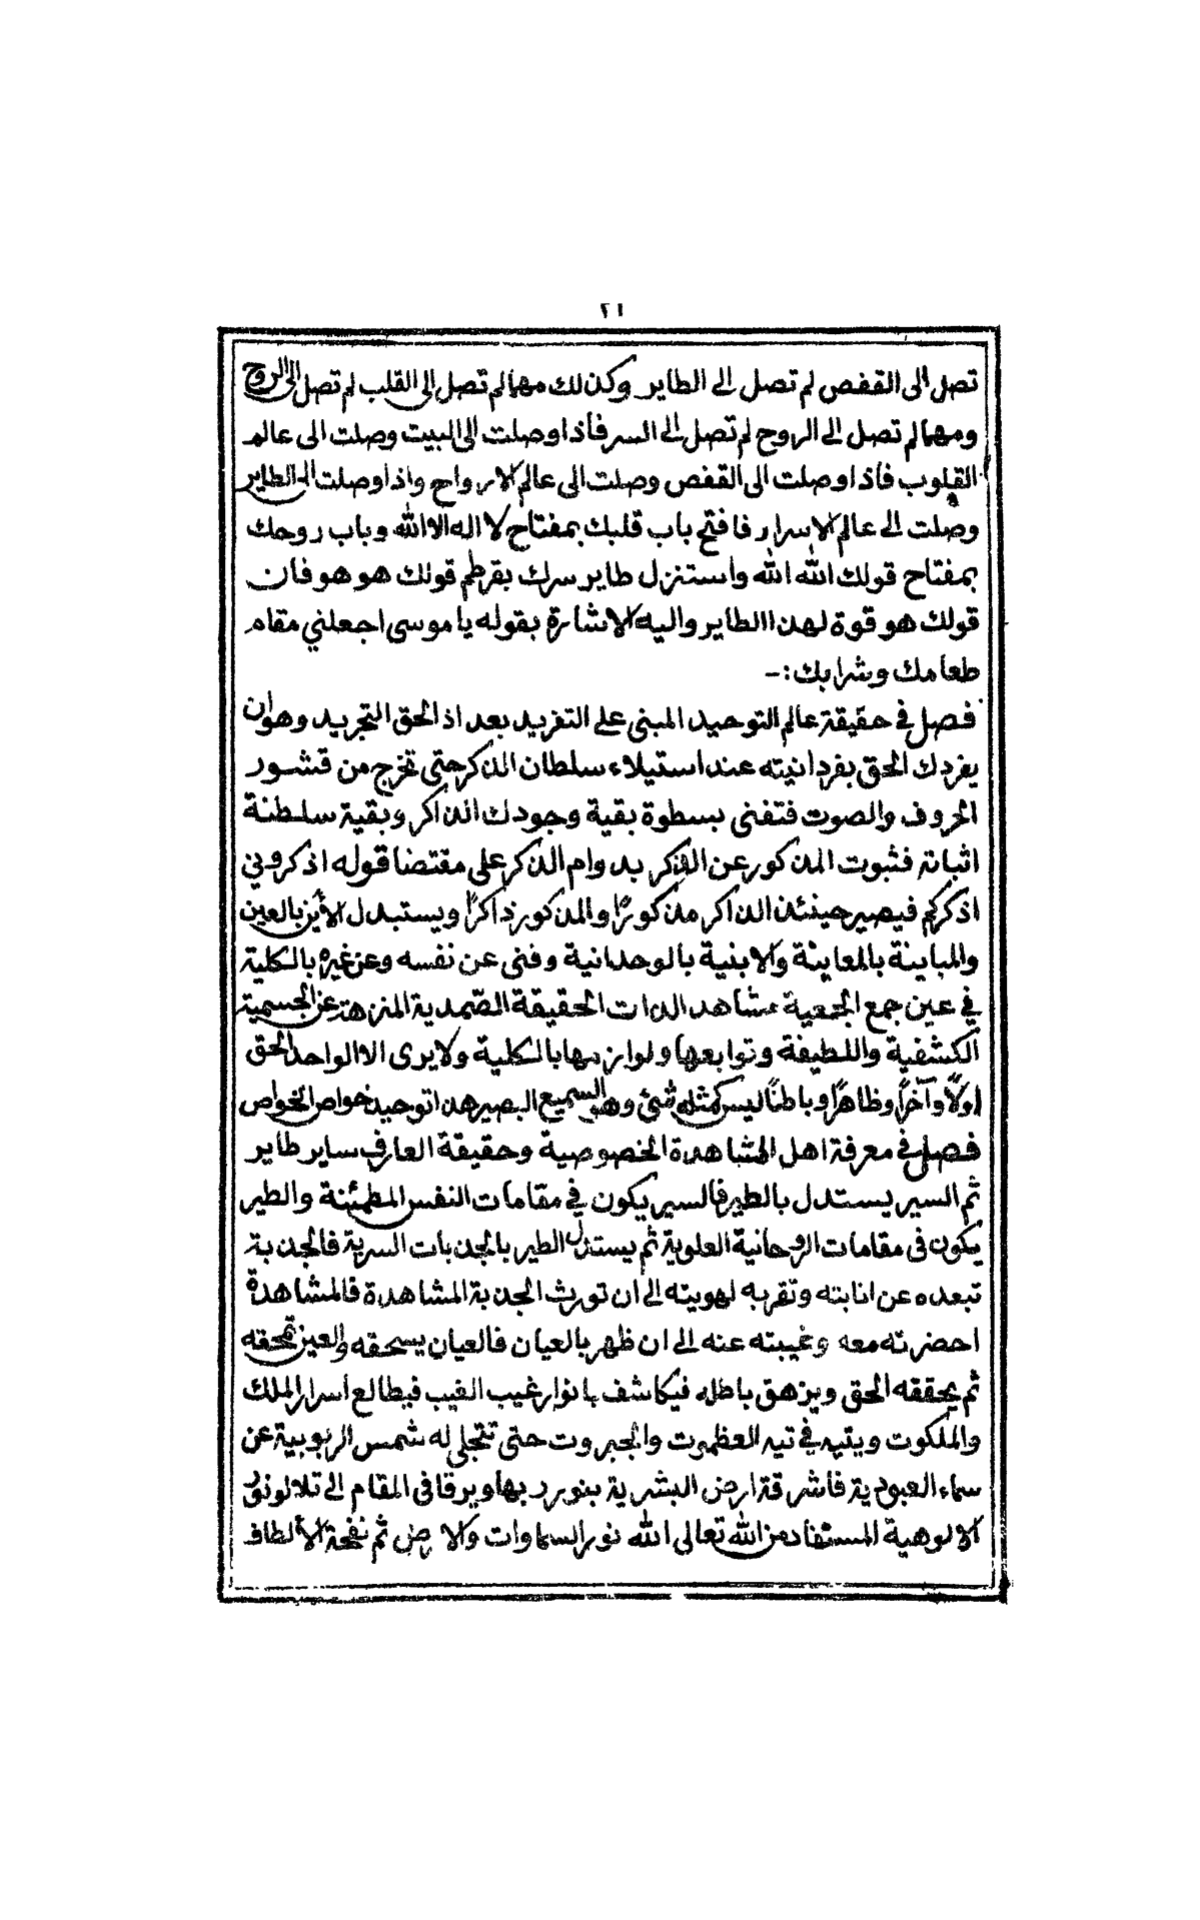 ٢١
تصل الى القفص لم تصل الى الطاير وكذلك مهما لم تصل الى القلب لم تصل الى الروح
ومهما لم تصل الى الروح لم تصل الى السر فأذا وصلت الى البيت وصلت الى عالم
القلوب فأذا وصلت الى القفص وصلت الى عالم الارواح واذا وصلت الى الطاير
وصلت الى عالم الاسرار فافتح باب قلبك بمفتاح لا اله الا الله وباب روحك
بمفتاح قولك الله الله واستنزل طاير سرك بقرطم قولك هو هو فان
قولك هو قوة لهذا الطاير واليه الاشارة بقوله يا موسى اجعلني مقام
طعامك وشرابك :-
فصل في حقيقة عالم التوحيد المبنى على التفريد بعد اذ الحق التجريد وهو ان
يفردك الحق بفردانيته عند استيلاء سلطان الذكر حتى تخرج من قشور
الحروف والصوت فتفنى بسطوة بقية وجودك الذاكر وبقية سلطنة
اثباته فثبوت المذكور عن الذكر بدوام الذكر على مقتضا قوله اذكروني
اذكركم فيصير حينئذ الذاكر مذكورًا والمذكور ذاكرًا ويستبدل الأين بالعين
والمباينة بالمعاينة والابنية بالوحدانية وفنى عن نفسه وعن غيره بالكلية
في عين جمع الجمعية مشاهد الذات الحقيقة الصّمدية المنزهة عن الجسمية
الكشفية واللطيفة وتوابعها ولوازمها بالكلية ولا يرى الا الواحد الحق
اولًا وآخرًا وظاهرًا وباطنًا ليس كمثله شئ وهو السميع البصير هذا توحيد خواص الخواص
فصل في معرفة اهل المشاهدة الخصوصية وحقيقة العارف ساير طاير
ثم السير يستدل بالطير فالسير يكون في مقامات النفس المطمئنة والطير
يكون فى مقامات الروحانية العلوية ثم يستدل الطير بالجذبات السرية فالجذبة
تبعده عن انابته وتقربه لهويته الى ان تورث الجذبة المشاهدة فالمشاهدة
احضرته معه وغيبته عنه الى ان ظهر بالعيان فالعيان يسحقه والعين تمحقه
ثم يحققه الحق ويزهق باطله فيكاشف بانوار غيب الغيب فيطالع أسرار الملك
والملكوت ويتيه في تيه العظموت والجبروت حتى تتجلى له شمس الربوبية عن
سماء العبودية فأشرقة ارض البشرية بنور ربها ويرقا فى المقام الى تلالو نور
الالوهية المستفاد من الله تعالى الله نور السماوات والارض ثم نفحة الألطاف